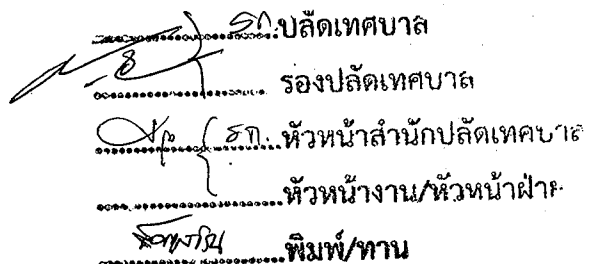 รก.ปลัดเทศบาล
รองปลัดเทศบาล
รก.หัวหน้าสำนักปลัดเทศบาล
หัวหน้างาน/หัวหน้าฝ่าย
พิมพ์/ทาน